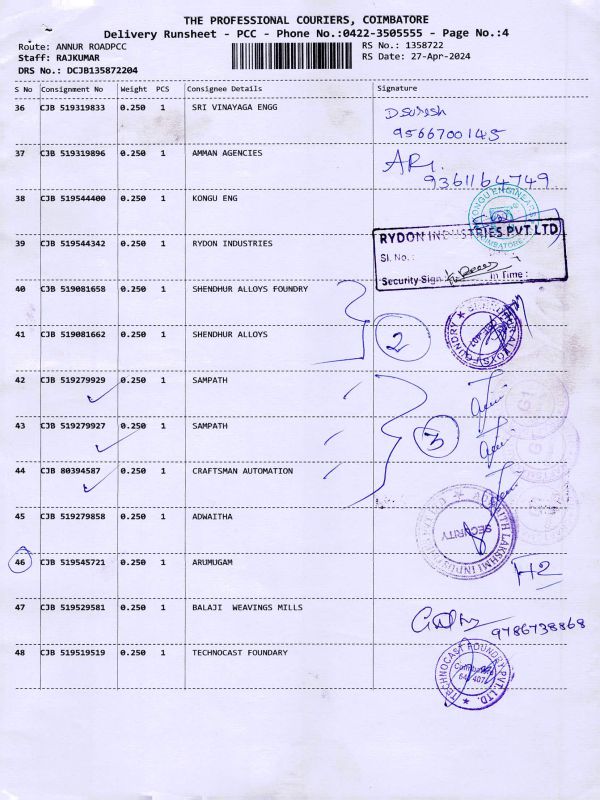 THE PROFESSIONAL COURIERS, COIMBATORE
Delivery Runsheet - PCC - Phone No.:0422-3505555 - Page No.:4
Route: ANNUR ROADPCC
RS No.: 1358722
Staff: RAJKUMAR
RS Date: 27-Apr-2024
DRS No.: DCJB135872204
S No Consignment No Weight PCS Consignee Details Signature
36 CJB 519319833 0.250 1 SRI VINAYAGA ENGG D Suresh
9566700145
37 CJB 519319896 0.250 1 AMMAN AGENCIES
9361164749
38 CJB 519544400 0.250 1 KONGU ENG
39 CJB 519544342 0.250 1 RYDON INDUSTRIES
RYDON INDUSTRIES PVT LTD
Sl. No. :
Security Sign. In Time :
40 CJB 519081658 0.250 1 SHENDHUR ALLOYS FOUNDRY
41 CJB 519081662 0.250 1 SHENDHUR ALLOYS 2
42 CJB 519279929 0.250 1 SAMPATH
43 CJB 519279927 0.250 1 SAMPATH 3
44 CJB 80394587 0.250 1 CRAFTSMAN AUTOMATION
45 CJB 519279858 0.250 1 ADWAITHA
SECURITY
46 CJB 519545721 0.250 1 ARUMUGAM H2
47 CJB 519529581 0.250 1 BALAJI WEAVINGS MILLS
9786738868
48 CJB 519519519 0.250 1 TECHNOCAST FOUNDARY
TECHNOCAST FOUNDRY PVT. LTD.